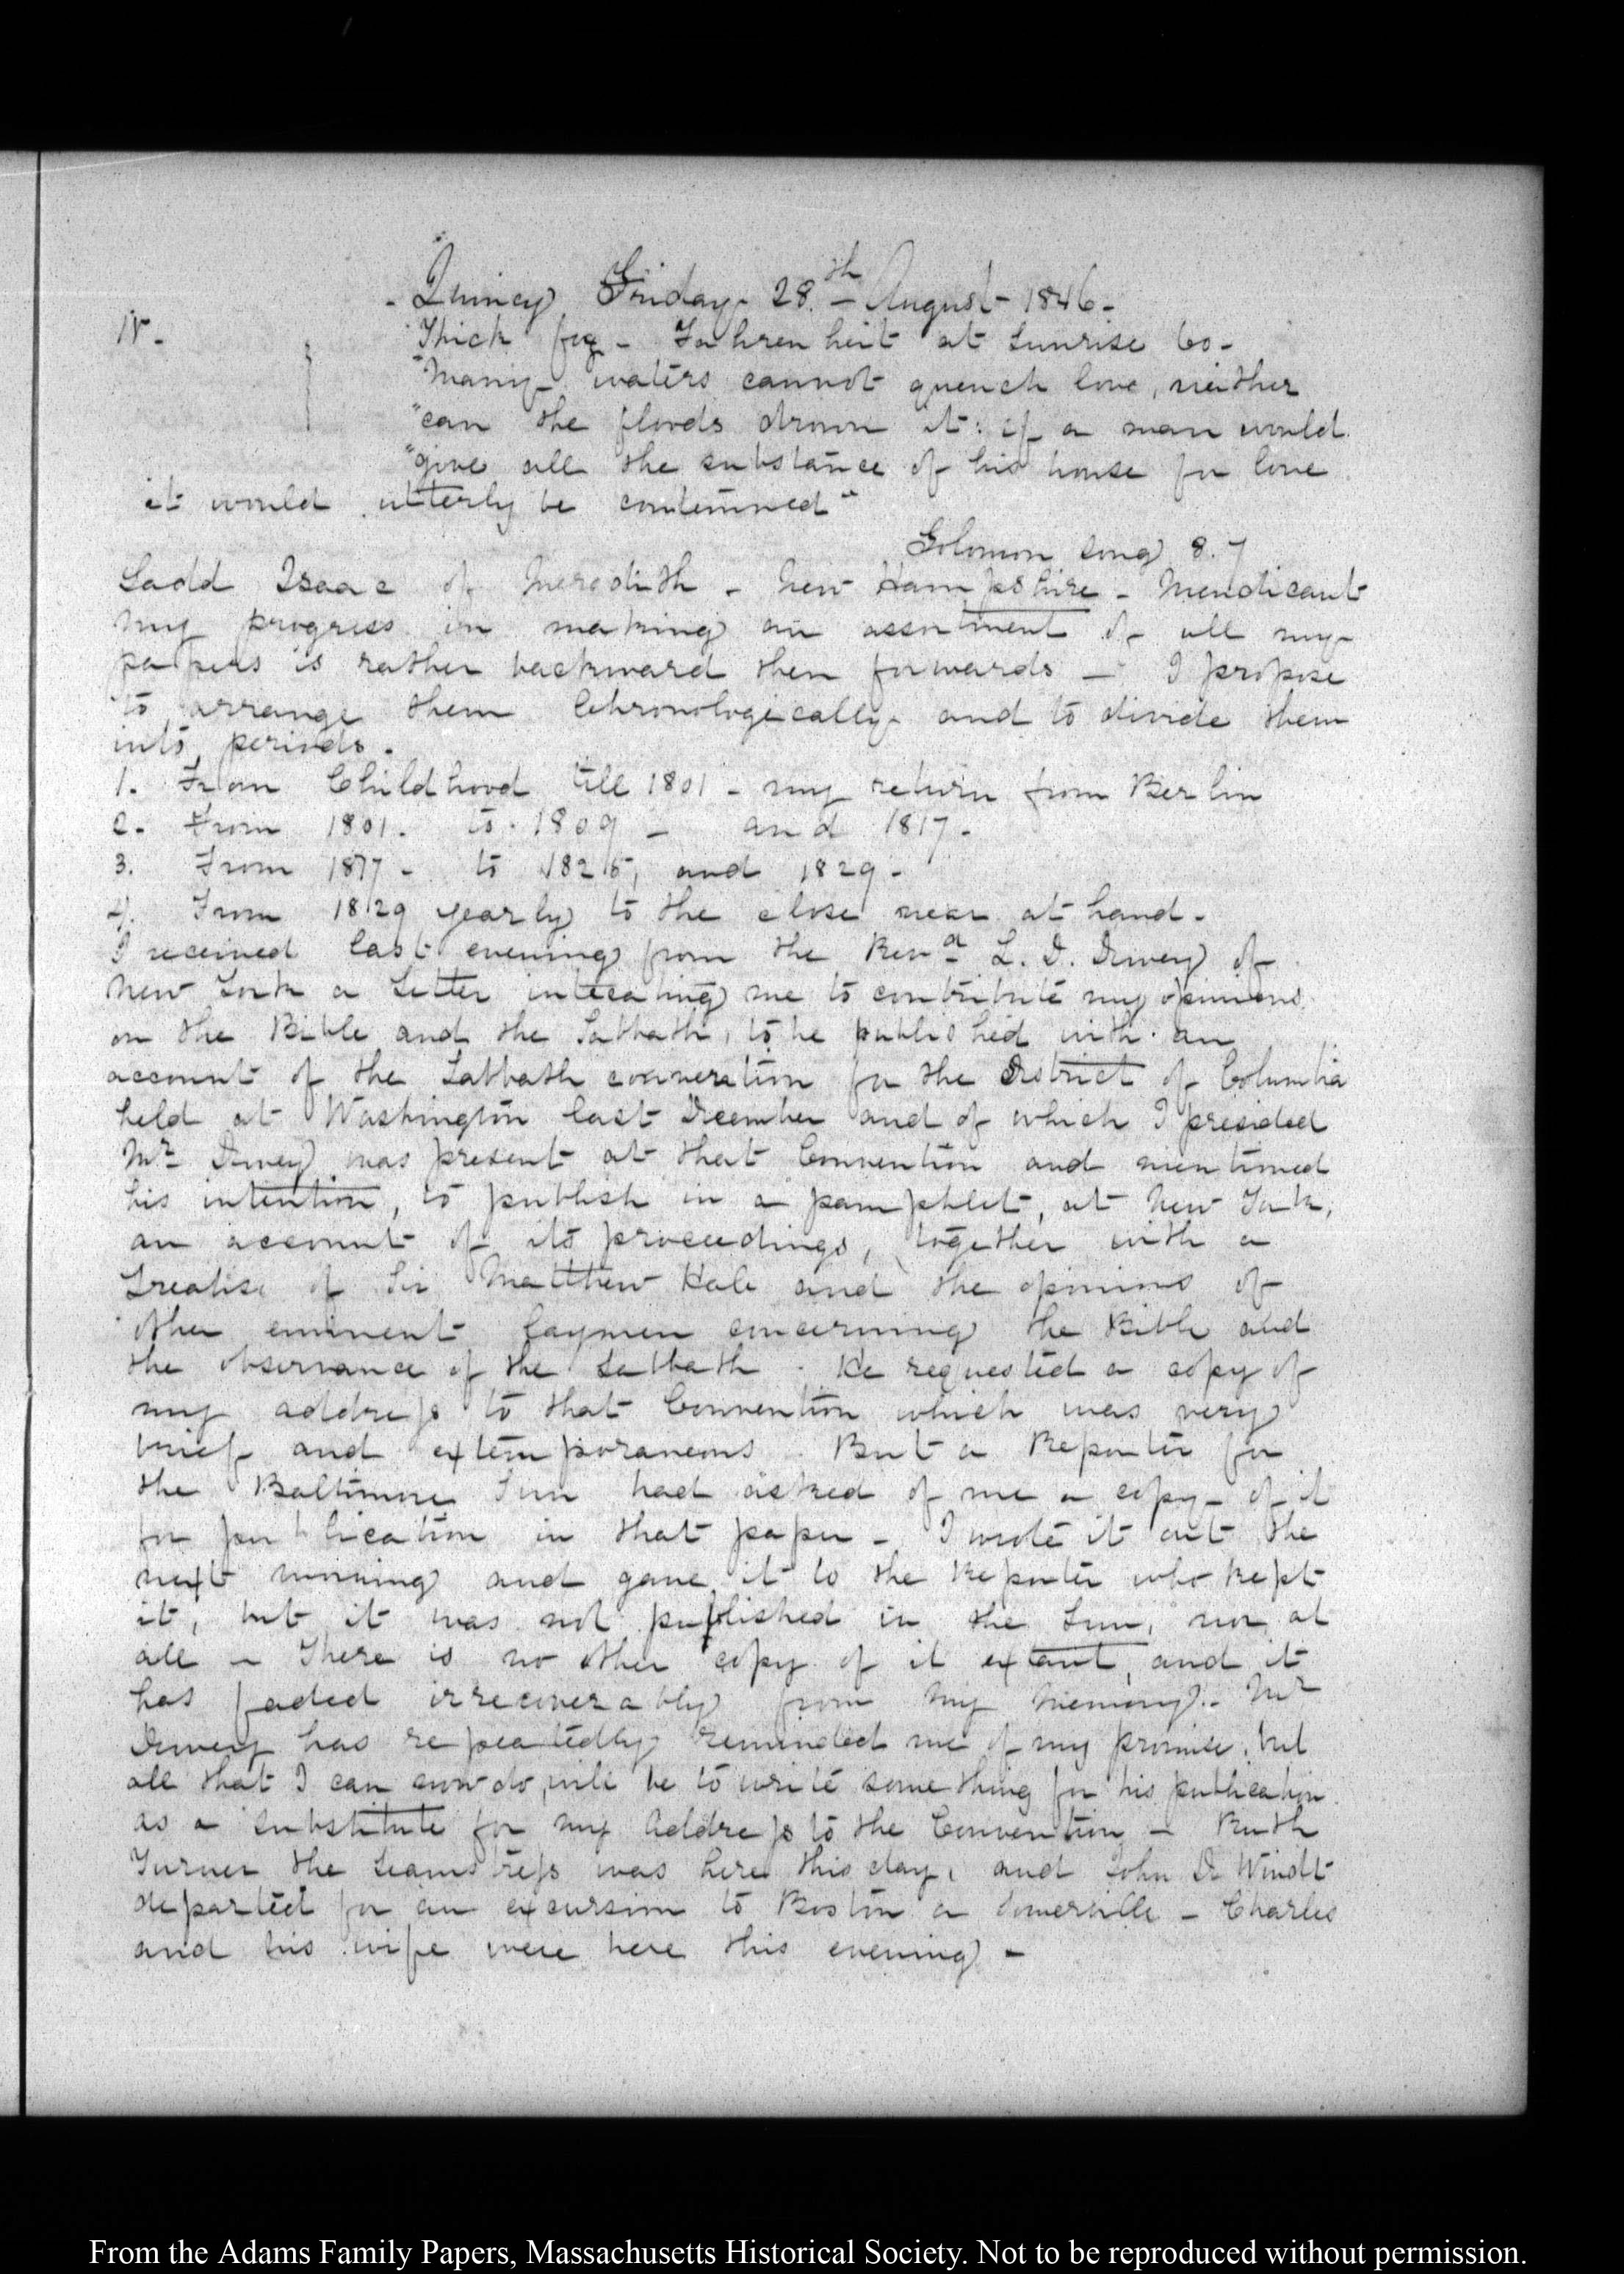 - Quincy Friday 28.th August 1846 -
IV. -
Thick fog - Fahrenheit at sunrise 60 -
"Many waters cannot quench love, neither
"can the floods drown it: if a man would
"give all the substance of his house for love
it would utterly be contemned"
Solomon song 8. 7
Ladd Isaac of Meredith - New Hampshire - Mendicant
My progress in making an assortment of all my
papers is rather backward then forwards - I propose
to arrange them Chronologically and to divide them
into periods.
1. From Childhood till 1801 - my return from Berlin
2. From 1801. to 1809 - and 1817 -
3. From 1817 - to 1825, and 1829 -
4. From 1829 yearly to the close near at hand -
I received last evening from the Revd L. D. Dewey of
New York a Letter me to contribute my opinions
on the Bible and the Sabbath, to be published with an
account of the Sabbath convention for the District of Columbia
held at Washington last December and of which I presided
Mr Dewey was present at that Convention and mentioned
his intention, to publish in a pamphlet, at New York,
an account of its proceedings, together with a
Treatise of Sir Matthew Hale and the opinions of
other eminent laymen concerning the Bible and
the observance of the Sabbath. He requested a copy of
my address to that Convention which was very
brief and extemporaneous. But a Reporter for
the Baltimore Sun had asked of me a copy of it
for publication in that paper - I wrote it out the
next morning and gave it to the Reporter who kept
it, but it was not published in the Sun, nor at
all - There is no other copy of it extant, and it
has faded irrecoverably from my memory. - Mr
Dewey has repeatedly reminded me of my promise, but
all that I can now do, will be to write something for his publication
as a substitute for my Address to the Convention - Ruth
Turner the Seamstress was here this day, and John D Windt
departed for an excursion to Boston a Somerville - Charles
and his wife were here this evening -
From the Adams Family Papers, Massachusetts Historical Society. Not to be reproduced without permission.